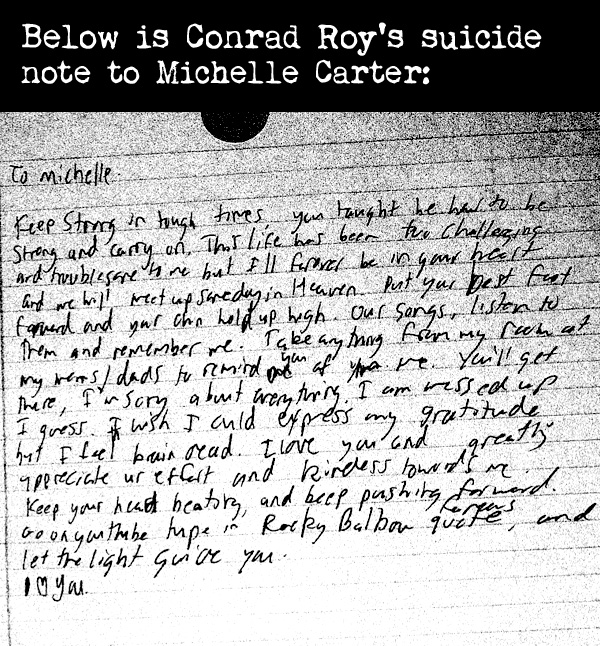 Below is Conrad Roy's suicide
note to Michelle Carter:
To Michelle.
Keep Strong in tough times you taught me how to be
Strong and carry on. This life has been too challenging
and troublesome to me but I'll forever be in your heart
and we will meet up someday in Heaven. Put your best foot
forward and your chin held up high. Our songs, listen to
them and remember me. Take anything from my room at
my moms/dads to remind you of me. You'll get
there, I'm sorry about everything. I am messed up
I guess. I wish I could express my gratitude
but I feel brain dead. I love you and greatly
appreciate ur effort and kindess towards me.
Keep your heart beating, and keep pushing forward.
Go on youtube type in Rocky Balboa famous quote, and
let the light guide you.
I ♡ you.